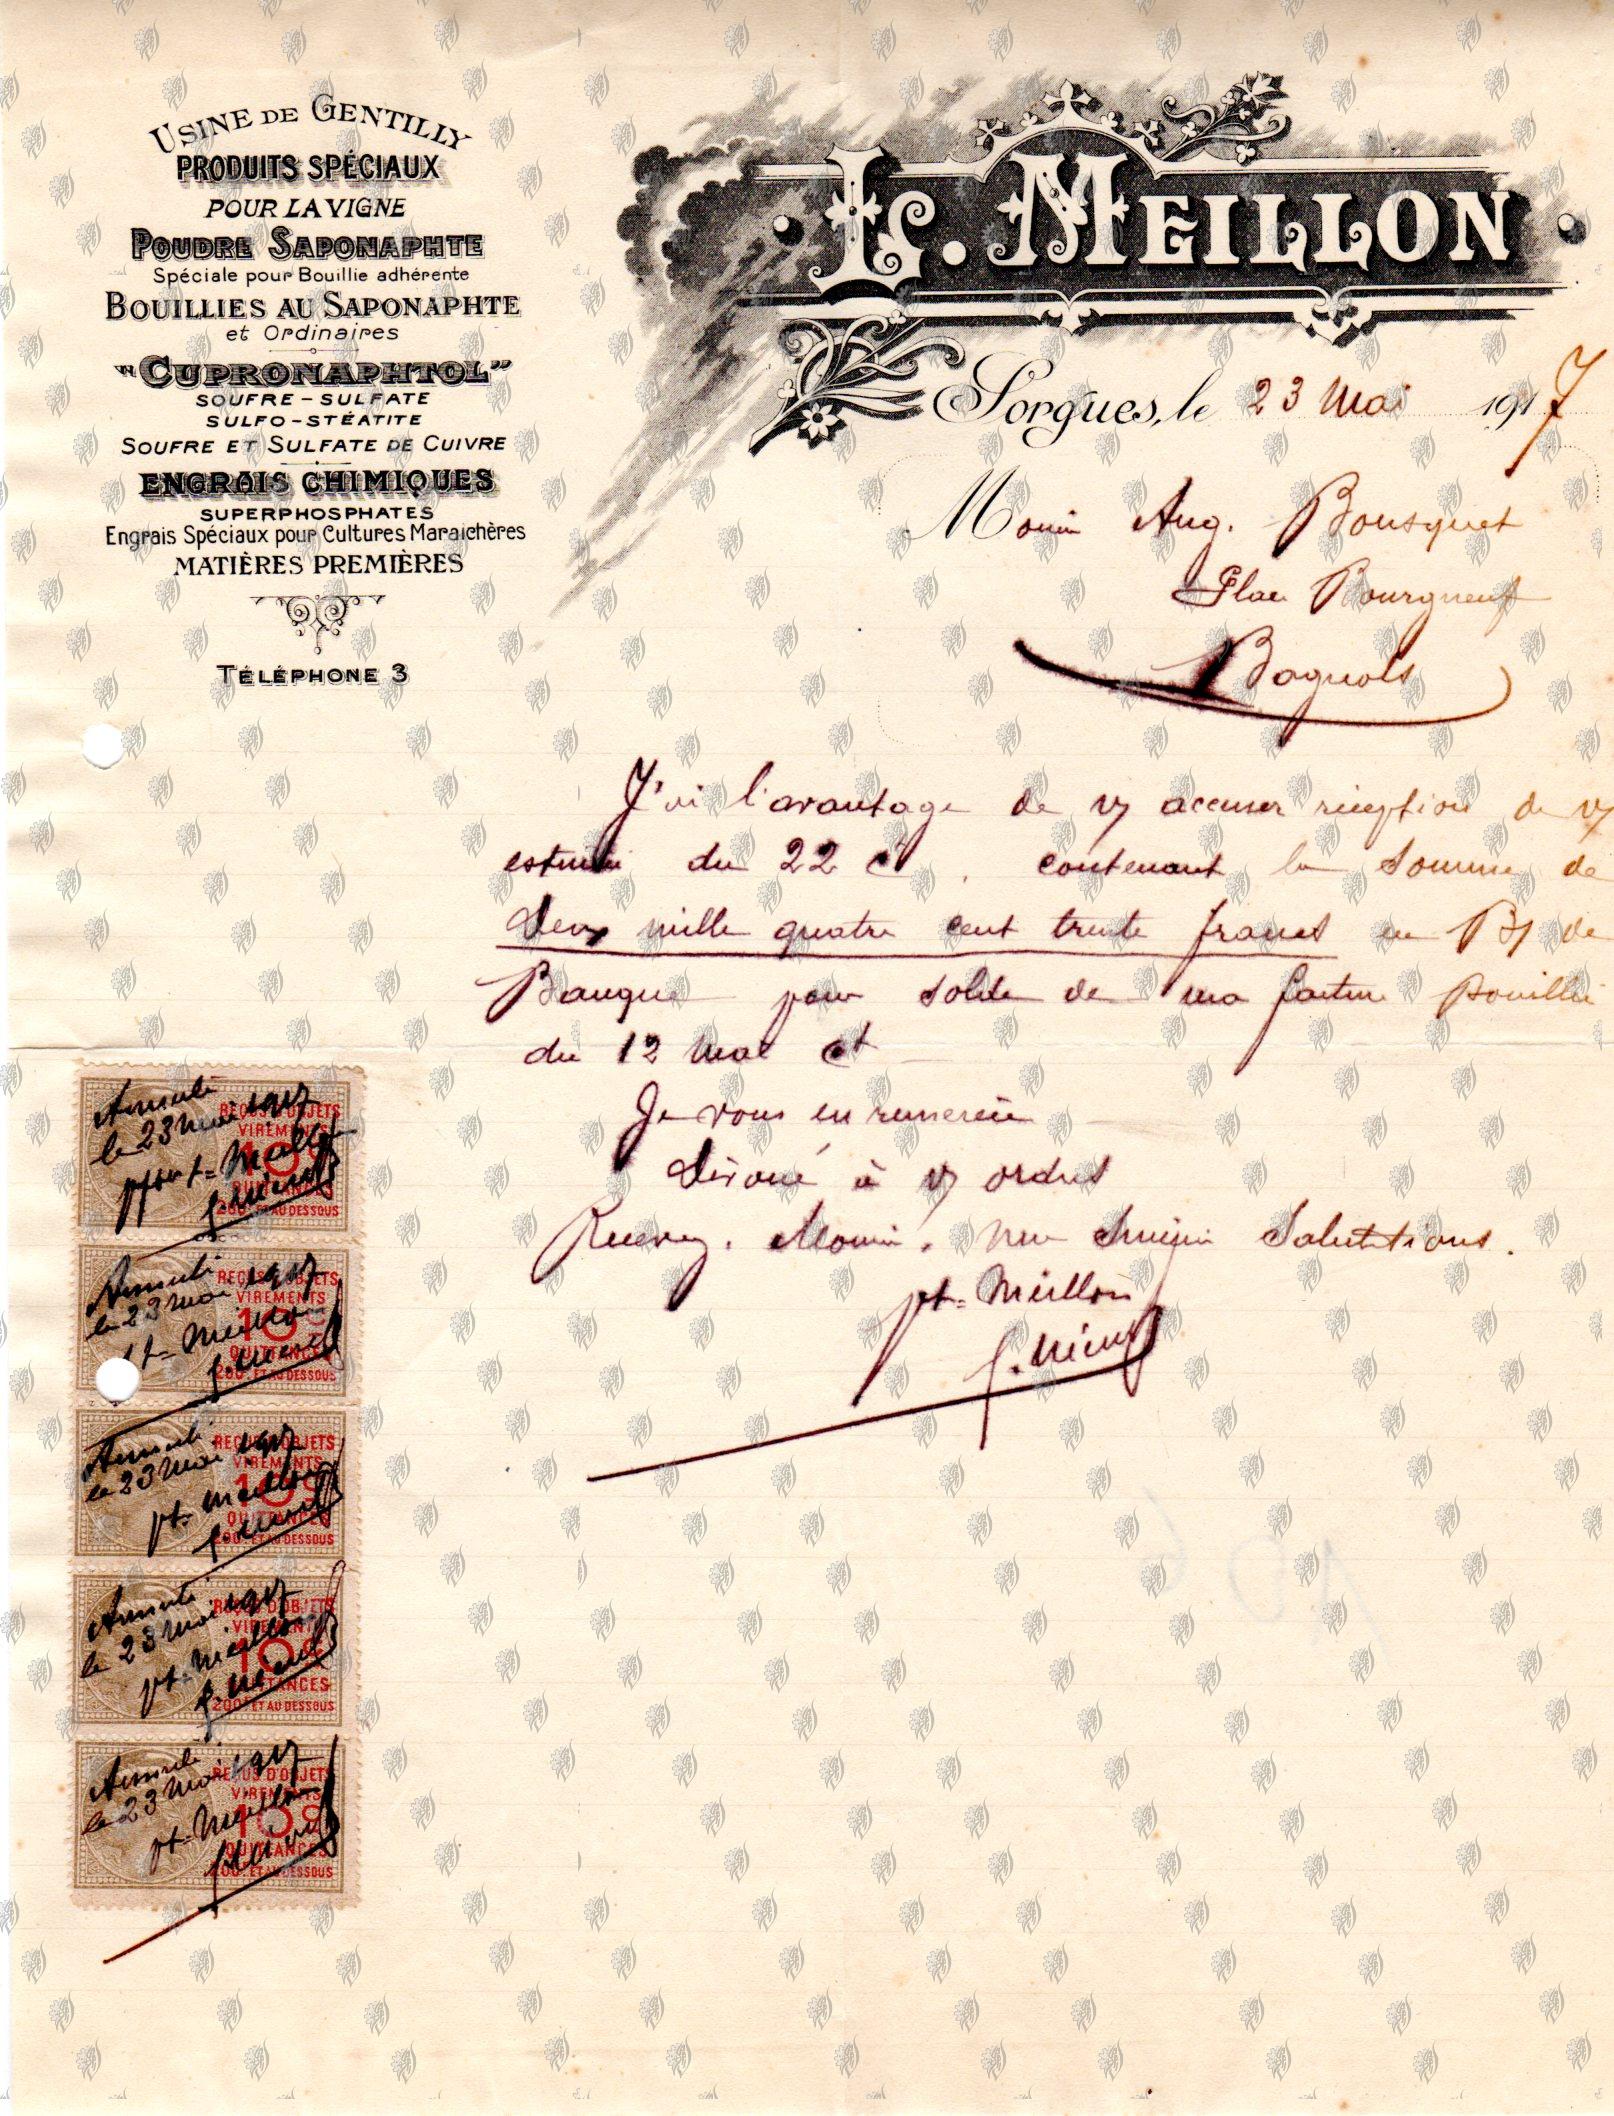 USINE DE GENTILLY
PRODUITS SPÉCIAUX
POUR LA VIGNE
POUDRE SAPONAPHTE
Spéciale pour Bouillie adhérente
BOUILLIES AU SAPONAPHTE
et Ordinaires
"CUPRONAPHTOL"
SOUFRE - SULFATE
SULFO - STÉATITE
SOUFRE ET SULFATE DE CUIVRE
ENGRAIS CHIMIQUES
SUPERPHOSPHATES
Engrais Spéciaux pour Cultures Maraichères
MATIÈRES PREMIÈRES
TÉLÉPHONE 3
L. MEILLON
Sorgues, le 23 Mai 1917
Aug. Bousquet
Place Bourgneuf
Bagnols
J'ai l'avantage de vs accuser réception de vs
estimée du 22 ct. contenant la somme de
Deux mille quatre cent trente francs en Bs de
Banque pour solde de ma facture Bouillie
du 12 Mai ct
Je vous en remercie
Dévoué à vs ordres
Recevez. Monsieur. mes sincères Salutations.
pt= Meillon
Annulé
le 23 Mai 1917
Meillon
REÇUS D'OBJETS
VIREMENTS
10c
QUITTANCES
200f ET AU DESSOUS
Annulé
le 23 Mai 1917
pt= Meillon
REÇUS D'OBJETS
VIREMENTS
10c
QUITTANCES
200f ET AU DESSOUS
Annulé
le 23 Mai 1917
pt= Meillon
REÇUS D'OBJETS
VIREMENTS
10c
QUITTANCES
200f ET AU DESSOUS
Annulé
le 23 Mai 1917
pt= Meillon
REÇUS D'OBJETS
VIREMENTS
10c
QUITTANCES
200f ET AU DESSOUS
Annulé
le 23 Mai 1917
pt= Meillon
REÇUS D'OBJETS
VIREMENTS
10c
QUITTANCES
200f ET AU DESSOUS